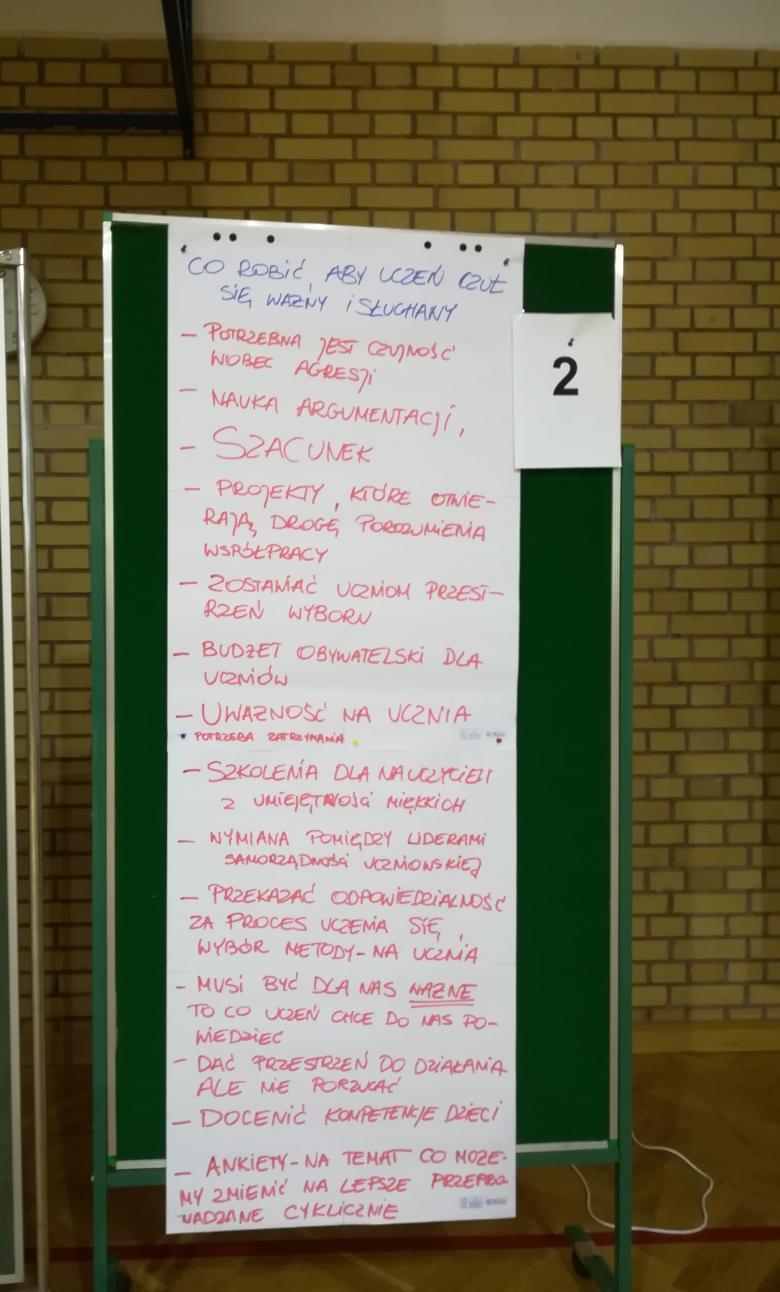 CO ROBIĆ, ABY UCZEŃ CZUŁ
SIĘ WAŻNY I SŁUCHANY
2
- POTRZEBNA JEST CZUJNOŚĆ
WOBEC AGRESJI
- NAUKA ARGUMENTACJI,
- SZACUNEK
- PROJEKTY, KTÓRE OTWIE-
RAJĄ DROGĘ POROZUMIENIA
WSPÓŁPRACY
- ZOSTAWIAĆ UCZNIOM PRZEST-
RZEŃ WYBORU
- BUDŻET OBYWATELSKI DLA
UCZNIÓW
- UWAŻNOŚĆ NA UCZNIA
• POTRZEBA ZATRZYMANIA
- SZKOLENIA DLA NAUCZYCIELI
Z UMIEJĘTNOŚCI MIĘKKICH
- WYMIANA POMIĘDZY LIDERAMI
SAMORZĄDNOŚCI UCZNIOWSKIEJ
- PRZEKAZAĆ ODPOWIEDZIALNOŚĆ
ZA PROCES UCZENIA SIĘ,
WYBÓR METODY - NA UCZNIA
- MUSI BYĆ DLA NAS WAŻNE
TO CO UCZEŃ CHCE DO NAS PO-
WIEDZIEĆ
- DAĆ PRZESTRZEŃ DO DZIAŁANIA
ALE NIE PORZUCAĆ
- DOCENIĆ KOMPETENCJE DZIECI
- ANKIETY - NA TEMAT CO MOŻE-
MY ZMIENIĆ NA LEPSZE PRZEPRO
WADZANE CYKLICZNIE